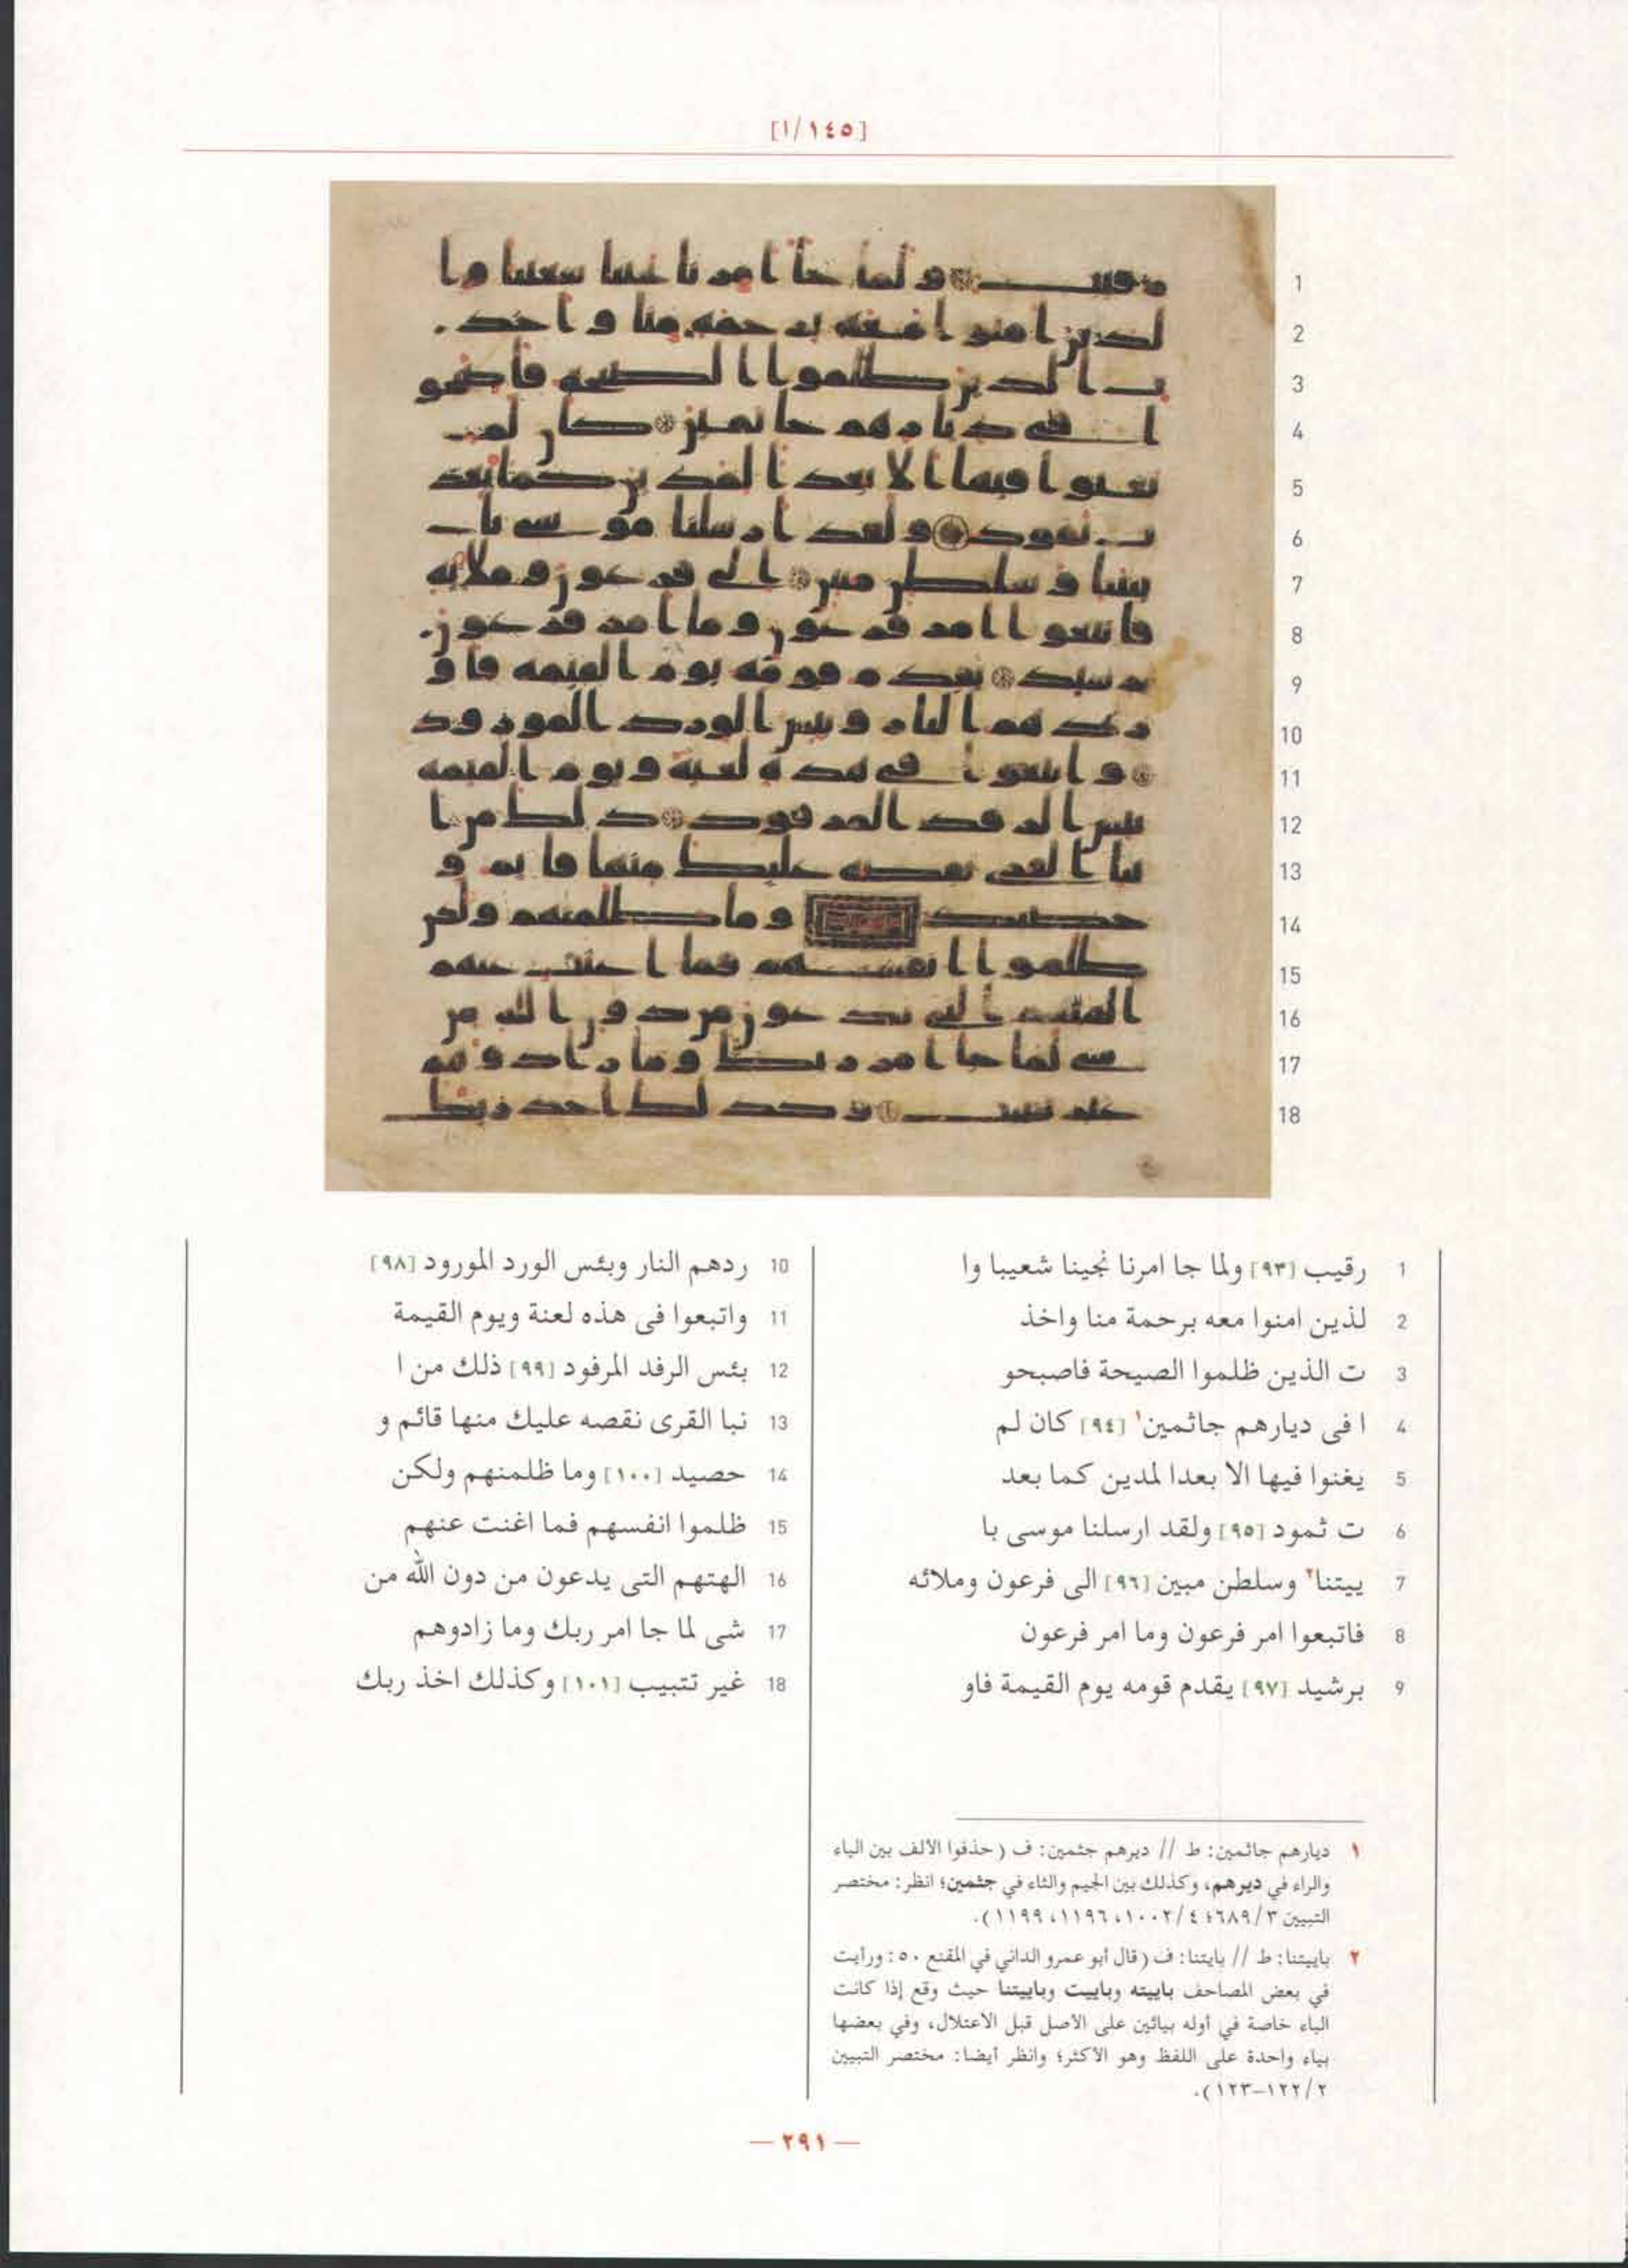 [١/١٤٥]
1 رقيب [٩٣] ولما جا امرنا نجينا شعيبا وا
2 لذين امنوا معه برحمة منا واخذ
3 ت الذين ظلموا الصيحة فاصبحو
4 ا فى ديارهم جاثمين١ [٩٤] كان لم
5 يغنوا فيها الا بعدا لمدين كما بعد
6 ت ثمود [٩٥] ولقد ارسلنا موسى با
7 ييتنا٢ وسلطن مبين [٩٦] الى فرعون وملائه
8 فاتبعوا امر فرعون وما امر فرعون
9 برشيد [٩٧] يقدم قومه يوم القيمة فاو
10 ردهم النار وبئس الورد المورود [٩٨]
11 واتبعوا فى هذه لعنة ويوم القيمة
12 بئس الرفد المرفود [٩٩] ذلك من ا
13 نبا القرى نقصه عليك منها قائم و
14 حصيد [١٠٠] وما ظلمنهم ولكن
15 ظلموا انفسهم فما اغنت عنهم
16 الهتهم التى يدعون من دون الله من
17 شى لما جا امر ربك وما زادوهم
18 غير تتبيب [١٠١] وكذلك اخذ ربك
١ ديارهم جاثمين: ط // ديرهم جثمين: ف (حذفوا الألف بين الياء
والراء في ديرهم، وكذلك بين الجيم والثاء في جثمين؛ انظر: مختصر
التبيين ٦٨٩/٣؛ ١٠٠٢/٤، ١١٩٦، ١١٩٩).
٢ باييتنا: ط // بايتنا: ف (قال أبو عمرو الداني في المقنع ٥٠: ورأيت
في بعض المصاحف باييته وباييت وباييتنا حيث وقع إذا كانت
الباء خاصة في أوله بيائين على الأصل قبل الاعتلال، وفي بعضها
بياء واحدة على اللفظ وهو الأكثر؛ وانظر أيضا: مختصر التبيين
١٢٢/٢-١٢٣).
— ٢٩١ —